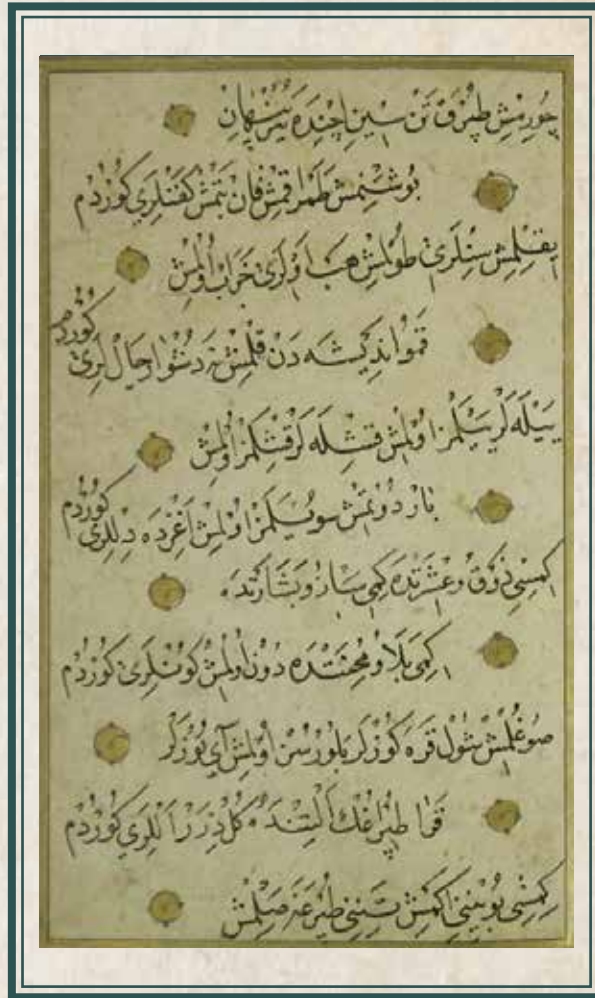 چورمش طپرق تن سین اچنده یتر پنهان
بوشنمش طمر اقمش قان بتمش کفنلری کوردم
یقلمش سنلری طولمش هبا اولری خراب اولمش
قمو اندیشه دن قلمش نه دشوار حال لری کوردم
ییله لر ییلمز اولمش قشله لر قشلمز اولمش
بار دوتمش سویلمز اولمش اغزده دللری کوردم
کمسی ذوق و عشرتده کمی ساز و بشارتده
کمی بلا و محنتده دون اولمش کونلری کوردم
صوغلمش شول قره کوزلر بلورسز اولمش آی یوزلر
قرا طپراغک التنده کل درر اللری کوردم
کمسی بوینی اکمش تننی طپرغه صلمش